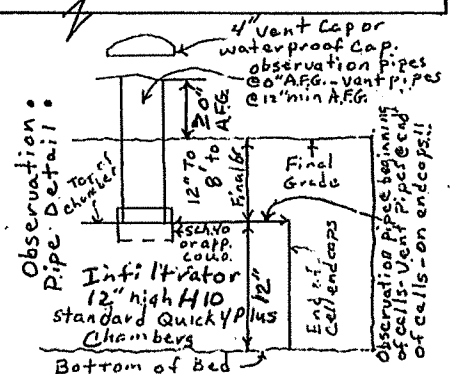 4" vent Cap or
waterproof Cap.
observation pipes
@0" A.F.G. - vent pipes
@12" min A.F.G.
≥0"
A.F.G.
Observation
Pipe Detail:
12" To
8' to
Final Gr
Final
Grade
Top of
Chamber
sch.40
or app.
Infiltrator
12" high H10
Standard Quick4 Plus
Chambers
12"
End of
Cell endcaps
Bottom of Bed
Observation Pipes beginning
of cells - Vent Pipes @ end
of cells - on endcaps!!